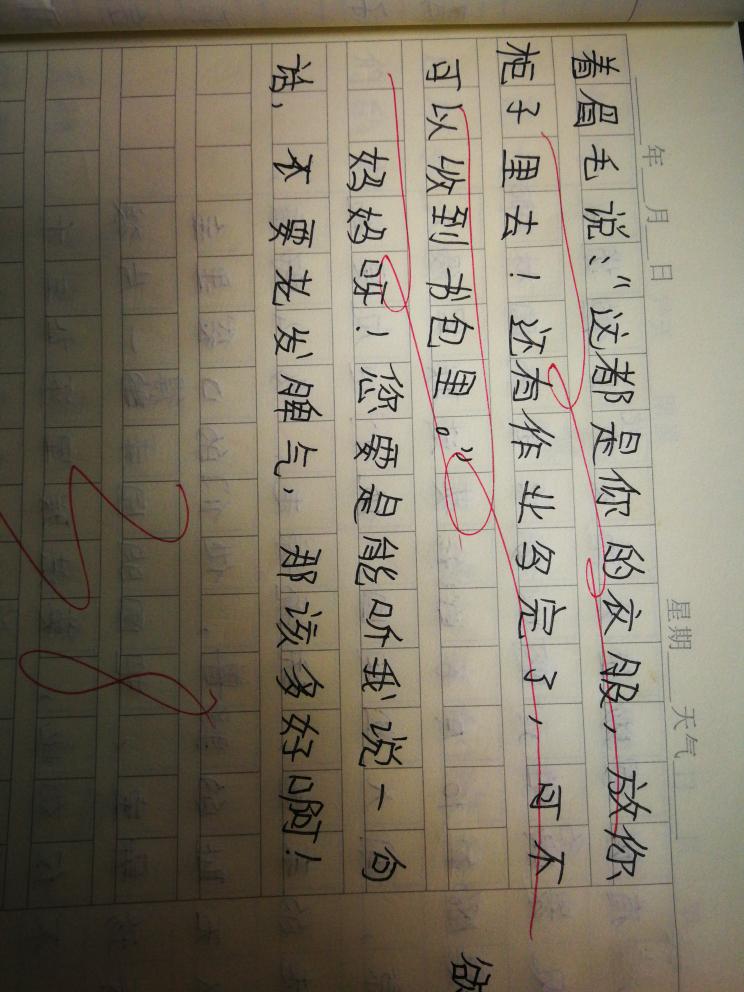 年 月 日 星期 天气
着眉毛说:“这都是你的衣服,放你
柜子里去!还有作业写完了,可不
可以收到书包里。”
妈妈呀!您要是能听我说一句
话,不要老发脾气,那该多好啊!